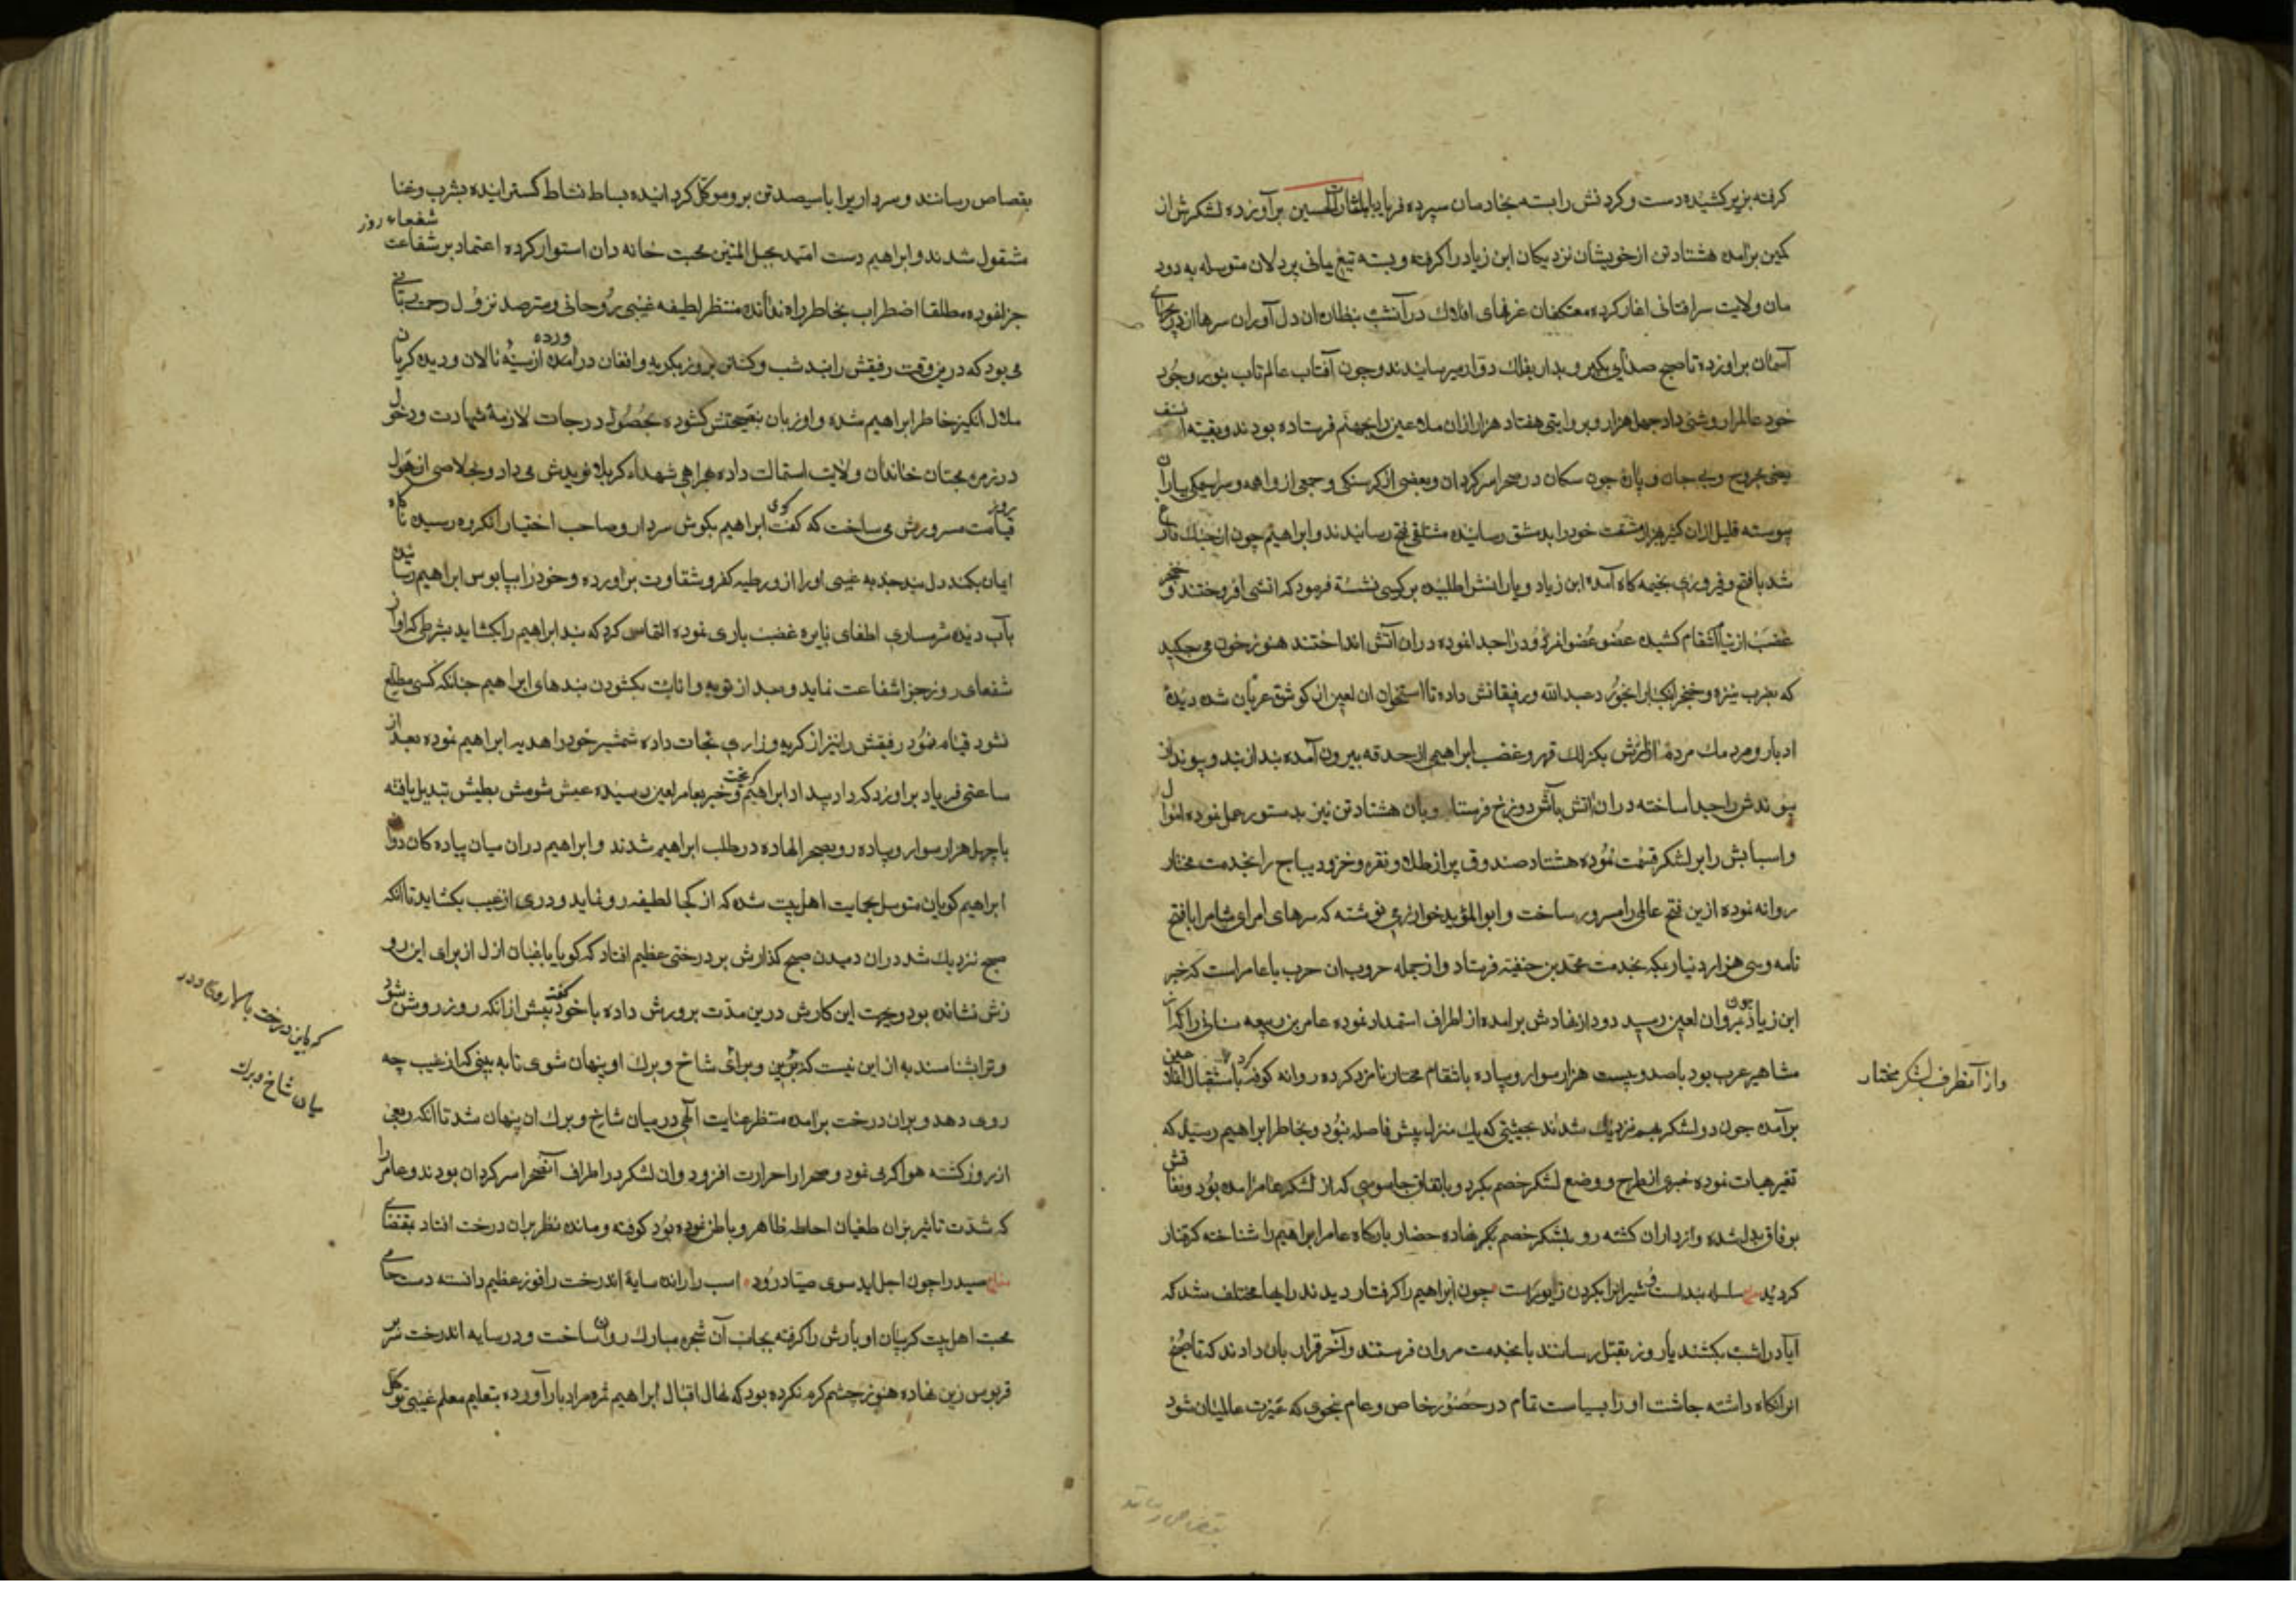 کرفته بزیر کشیده دست و کردنش را بسته بخادمان سپرده فریاد یا لثارات الحسین برآورده لشکرش از
کمین برآمده هشتاد تن از خویشان نزدیکان ابن زیاد را کرفته و بسته تیغ یمانی بر دلان متوسله به دود
مان ولایت سرافشانی اغاز کرده معتکفان غرفهای افلاک در آنشب بنظاره ان دل آوران سرها از دریچهای
آسمان براورده تا صبح صدای بکیر و بدار بفلک دوار میرسانیدند و چون آفتاب عالم تاب بنور وجود
خود عالمرا روشنی داد چهل هزار و بروایتی هفتاد هزار ازان ملاعین را بجهنم فرستاده بودند و بقیة السیف
بعضی مجروح و بی جان و پارۀ چون سکان در صحرا سرکردان و بعضی از کرسنکی و جمعی از واهمه و سراسیمکی بیاران
پیوسته قلیل ازان کثیر هزار مشقت خود را بدمشق رسانیده مشتلق فتح رسانیدند و ابراهیم چون از جنک فارغ
شد با فتح و فیروزی بخیمه کاه آمده ابن زیاد و یارانش را طلبیده بر کرسی نشسته فرمود که اتشی افروختند و خنجر
غضب از نیام انتقام کشیده عضو عضو انمردود را جدا نموده دران آتش انداختند هنوز خون می چکید
که بضرب نیزه و خنجر انکبابرا بخورد عبد الله و رفیقانش داده تا استخوان ان لعین از کوشق عریان شده دیدۀ
ادبار و مردمک مردم ازارش بکزلک قهر و غضب ابراهیمی از حدقه بیرون آمده بند از بند و پیوند از
پیوندش را جدا ساخته دران اتش بآتش دوزخ فرستاد و بان هشتاد تن نیز بدستور عمل نموده اموال
و اسبابش را بر لشکر قسمت نموده هشتاد صندوق پر از طلا و نقره و خز و دیباج را بخدمت مختار
روانه نوده ازین فتح عالمی را مسرور ساخت و ابو المؤید خوارزمی نوشته که سرهای امرای شامرا با فتح
نامه و سی هزار دنیار بمکه بخدمت محمد بن حنفیه فرستاد و از جمله حروب ان حرب با عامر است که خبر
ابن زیاد چون بمروان لعین رسید دود از نهادش برامده از اطراف استمداد نموده عامر بن ربیعه را که از
مشاهیر عرب بود با صد و بیست هزار سوار و پیاده بانتقام مختار نامزد کرده روانه کوفه کرد
و از آنطرف لشکر مختار
برآمده چون دو لشکر بهم نزدیک شدند حیثیتی که یک منزل بیش فاصله نبود و بخاطر ابراهیم رسید که
تغیر هیات نموده خبری از طرح و وضع لشکر خصم بکیرد و باتفاق جاسوسی که از لشکر عامر امده بود و نفاقش
بوفاق بدل شده و از یاران کشته رو بلشکر خصم نهاده حضار بارکاه عامر ابراهیم را شناخته کرفتار
کردید سلسله بند است شیرانرا بکردن زیورست چون ابراهیم را کرفتار دیدند رایها مختلف شد که
آیا در انشب بکشند یا روز بقتل رسانند یا بخدمت مروان فرستند و آخر قرار بان دادند که تا صبح
انرا نکاه داشته چاشت او را بسیاست تمام در حضور خاص و عام بنحوی که عبرت عالمیان شود
بقصاص رساند
بقصاص رسانند و سرداریرا با سیصد تن برو موکل کردانیده بساط نشاط کسترانیده بشرب و غنا
مشغول شدند و ابراهیم دست امید بحبل المتین محبت خانه دان استوار کرده اعتماد بر شفاعت شفعاء روز
جزا نموده مطلقا اضطراب بخاطر راه نداده منتظر لطیفه غیبی روحانی و مترصد نزول رحمت
می بود که درین وقت رفیقش را بند شب و کشتن بروز بکریه و افغان دراورده از سینۀ نالان و دیده کریان
ملال انکیز خاطر ابراهیم شده و او زبان بنصیحتش کشوده بحصول درجات لازمۀ شهادت و دخول
در زمره محبان خاندان ولایت استمالت داده همراهی شهداء کربلا نویدش می داد و بخلاصی از هول
روز قیامت مسرورش می ساخت که گفت کوی ابراهیم بکوش سردار و صاحب اختیار انکروه رسیده ناکاه
ایمان بکمند دل بند جذبه غیبی او را از ورطه کفر و شقاوت براورده و خود را بپابوس ابراهیم رسانیده
بآب دیده شرمساری اطفای نایره غضب باری نموده التماس کرد که بند ابراهیم را بکشاید بشرطی که او از
شفعای روز جزا شفاعت نماید و بعد از توبه و انابت بکشودن بندهای ابراهیم چنانکه کسی مطلع
نشود قیام نمود رفیقش را نیز از کریه و زاری نجات داده شمشیر خود را هدیه ابراهیم نموده بعد از
ساعتی فریاد براورد که دارید اد ابراهیم کریخت و خبر بعامر لعین رسیده عیش شومش بطیش تبدیل یافته
با چهل هزار سوار و پیاده رو بصحرا نهاده در طلب ابراهیم شدند و ابراهیم دران میان پیاده کان دوان
ابراهیم کویان متوسل بحمایت اهل بیت شده که از کجا لطیفه رو نماید و دری از غیب بکشاید تا انکه
صبح نزدیک شد دران دمیدن صبح کذارش بر درختی عظیم افتاد که کویا باغبان ازل از برای این رو
زش نشانده بود و بجهت این کارش درین مدت پرورش داده با خود کفته پیش از انکه روز روشن شود
و ترا بشناسند به از این نیست که برین و برای شاخ و برک او پنهان شوی تا به بینی که از غیب چه
که باین درخت بالا روی و در
میان شاخ و برک
روی دهد و بران درخت برآمده منتظر عنایت الهی در میان شاخ و برک ان پنهان شد تا انکه ربعی
از روز کشته هوا کرمی نمود و صحرا را حرارت افزود و ان لشکر در اطراف آنصحرا سرکردان بودند و عامر را
که شدت تاثیر نیران طغیان احاطه ظاهر و باطن نموده بود کوفته و مانده نظر بران درخت افتاد بمقتضای
صید را چون اجل اید سوی صیاد رود اسب را رانده سایۀ اندرخت را فوز عظیم دانسته دست حمایت
محبت اهل بیت کریبان او بارش را کرفته بجانب آن شجره مبارک روان ساخت و در سایه اندرخت سر بر
قربوس زین نهاده هنوز چشم کرم نکرده بود که نهال اقبال ابراهیم ثمره مراد بار آورده بتعلیم معلم غیبی توکل